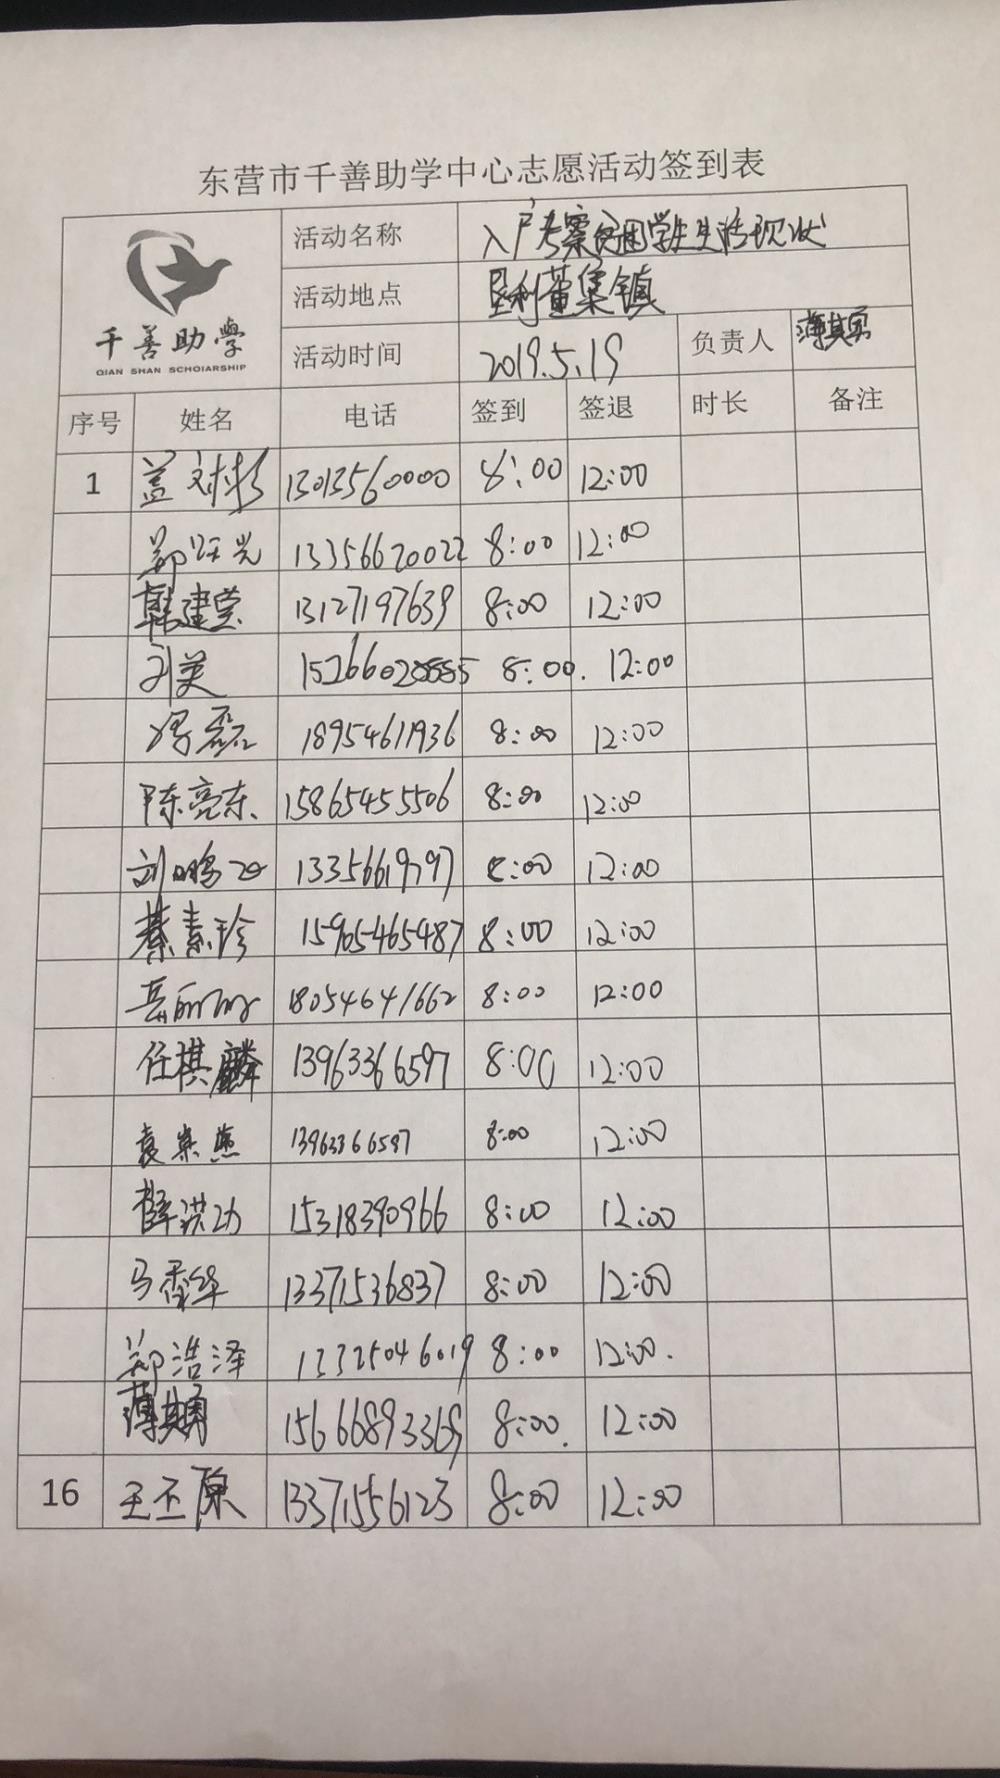 东营市千善助学中心志愿活动签到表
千善助学
QIAN SHAN SCHOIARSHIP
活动名称 入户考察贫困学生生活现状
活动地点 垦利董集镇
活动时间 2019.5.19 负责人 薄其勇
序号 姓名 电话 签到 签退 时长 备注
1 盖 13013560000 8:00 12:00
郑 13356620022 8:00 12:00
韩建堂 13127197639 8:00 12:00
刘英 8:00. 12:00
磊 18954611936 8:00 12:00
陈亮东 15865455506 8:00 12:00
刘鹏飞 13356619797 8:00 12:00
綦素珍 15965465487 8:00 12:00
18054641662 8:00 12:00
任棋麟 13963366597 8:00 12:00
袁 13963366597 8:00 12:00
薛洪功 15318390966 8:00 12:00
马秀华 13371536837 8:00 12:00
郑浩泽 13325046019 8:00 12:00.
薄其勇 15666893369 8:00. 12:00
16 王丕原 13371556123 8:00 12:00